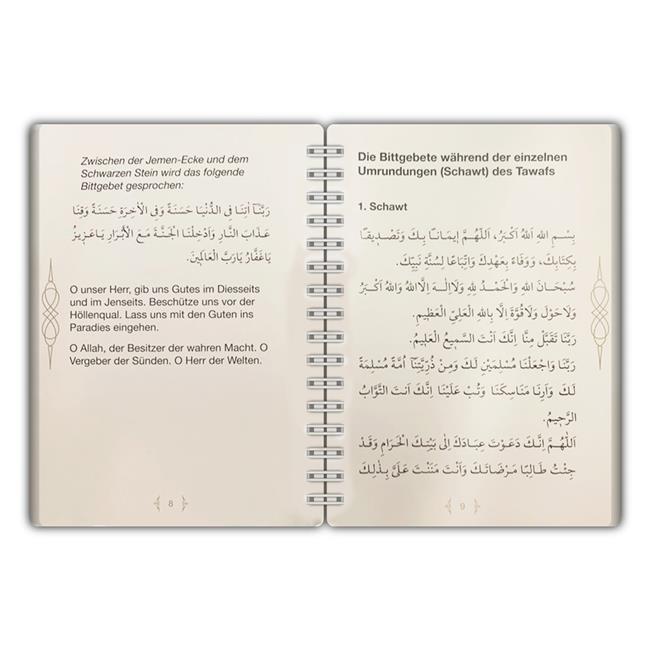 Zwischen der Jemen-Ecke und dem
Schwarzen Stein wird das folgende
Bittgebet gesprochen:
رَبَّنَٓا اٰتِنَا فِى الدُّنْيَا حَسَنَةً وَفِى الْاٰخِرَةِ حَسَنَةً وَقِنَا
عَذَابَ النَّارِ وَاَدْخِلْنَا الْجَنَّةَ مَعَ الْاَبْرَارِ يَاعَزِيزُ
يَاغَفَّارُ يَارَبَّ الْعَالَمِينَ.
O unser Herr, gib uns Gutes im Diesseits
und im Jenseits. Beschütze uns vor der
Höllenqual. Lass uns mit den Guten ins
Paradies eingehen.
O Allah, der Besitzer der wahren Macht. O
Vergeber der Sünden. O Herr der Welten.
8
Die Bittgebete während der einzelnen
Umrundungen (Schawt) des Tawafs
1. Schawt
بِسْمِ اللهِ اَللهُ اَكْبَرُ، اَللّٰهُمَّ اِيمَانًا بِكَ وَتَصْدِيقًا
بِكِتَابِكَ، وَوَفَاءً بِعَهْدِكَ وَاتِّبَاعًا لِسُنَّةِ نَبِيِّكَ.
سُبْحَانَ اللهِ وَالْحَمْدُ لِلهِ وَلَااِلٰهَ اِلَّااللهُ وَاللهُ اَكْبَرُ
وَلَاحَوْلَ وَلَاقُوَّةَ اِلَّا بِاللهِ الْعَلِيِّ الْعَظِيمِ.
رَبَّنَا تَقَبَّلْ مِنَّا اِنَّكَ اَنْتَ السَّمِيعُ الْعَلِيمُ.
رَبَّنَا وَاجْعَلْنَا مُسْلِمَيْنِ لَكَ وَمِنْ ذُرِّيَّتِنَٓا اُمَّةً مُسْلِمَةً
لَكَ وَاَرِنَا مَنَاسِكَنَا وَتُبْ عَلَيْنَا اِنَّكَ اَنْتَ التَّوَّابُ
الرَّحِيمُ.
اَللّٰهُمَّ اِنَّكَ دَعَوْتَ عِبَادَكَ اِلٰى بَيْتِكَ الْحَرَامِ وَقَدْ
جِئْتُ طَالِبًا مَرْضَاتَكَ وَاَنْتَ مَنَنْتَ عَلَيَّ بِذٰلِكَ
9